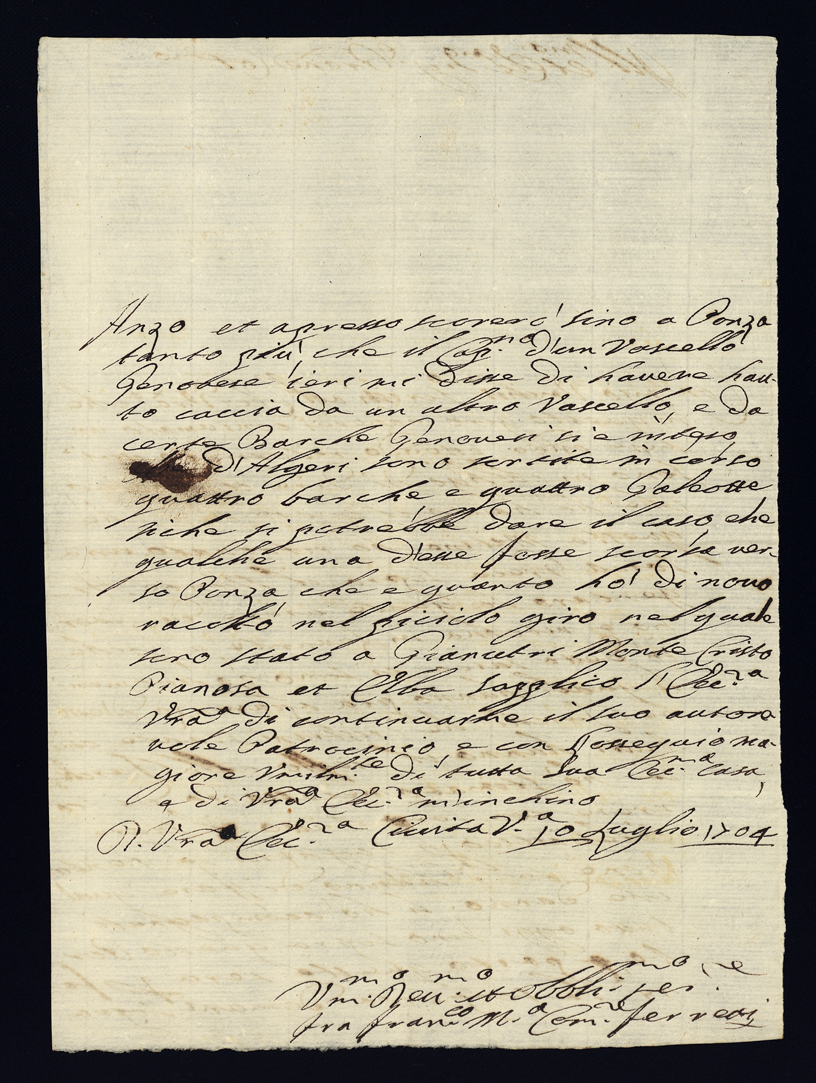 Anzo et apresso scorerò sino a Ponza
tanto più, che il Cap.no d'un Vascello
Genovese ieri mi disse di havere hau-
to caccia da un altro Vascello, e da
certe Barche Genovesi si è inteso
che d'Algeri sono sortite in corso
quattro barche e quattro Galeotte
siche si potrebbe dare il caso che
qualche una d'esse fosse scorsa ver-
so Ponza che e quanto hò di novo
racolto nel picciolo giro nel quale
sero stato a Gianutri Monte Cristo
Pianosa et Elba Supplico l'Ecc.za
Vra di continuarme il suo autore
vole Patrocinio e con l'ossequio ma-
giore Vmilm.te di tutta sua Ecc.ma casa,
e di Vra Ecc.za m'inchino
D. Vra Ecc.za Civita V.a 10 Luglio 1704
Vm.mo Dev.mo et Obbli.mo ser.re
fra Fran.co M.a Com.re Ferreri